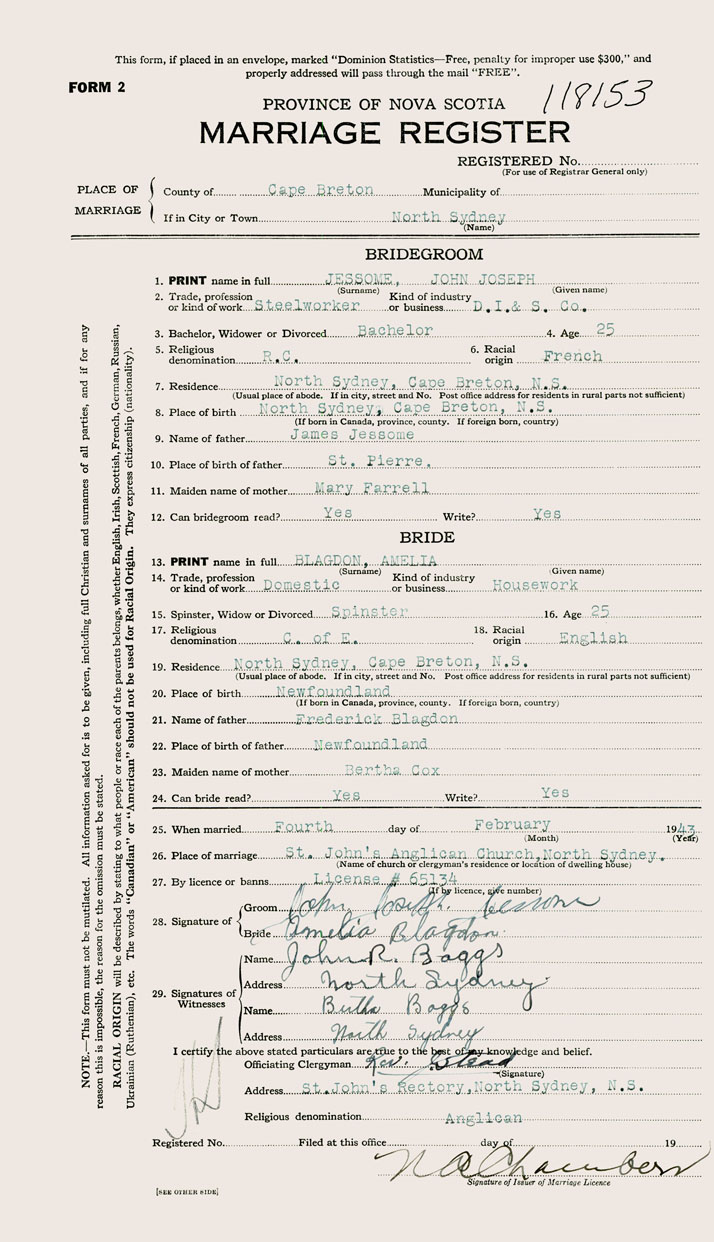 This form, if placed in an envelope, marked "Dominion Statistics—Free, penalty for improper use $300," and
properly addressed will pass through the mail "FREE".
FORM 2
118153
PROVINCE OF NOVA SCOTIA
MARRIAGE REGISTER
REGISTERED No.
(For use of Registrar General only)
PLACE OF MARRIAGE
County of Cape Breton Municipality of
If in City or Town North Sydney
(Name)
BRIDEGROOM
1. PRINT name in full JESSOME, JOHN JOSEPH
(Surname) (Given name)
2. Trade, profession or kind of work Steelworker Kind of industry or business D.I.& S. Co.
3. Bachelor, Widower or Divorced Bachelor 4. Age 25
5. Religious denomination R.C. 6. Racial origin French
7. Residence North Sydney, Cape Breton, N.S.
(Usual place of abode. If in city, street and No. Post office address for residents in rural parts not sufficient)
8. Place of birth North Sydney, Cape Breton, N.S.
(If born in Canada, province, county. If foreign born, country)
9. Name of father James Jessome
10. Place of birth of father St. Pierre.
11. Maiden name of mother Mary Farrell
12. Can bridegroom read? Yes Write? Yes
BRIDE
13. PRINT name in full BLAGDON, AMELIA
(Surname) (Given name)
14. Trade, profession or kind of work Domestic Kind of industry or business Housework
15. Spinster, Widow or Divorced Spinster 16. Age 25
17. Religious denomination C. of E. 18. Racial origin English
19. Residence North Sydney, Cape Breton, N.S.
(Usual place of abode. If in city, street and No. Post office address for residents in rural parts not sufficient)
20. Place of birth Newfoundland
(If born in Canada, province, county. If foreign born, country)
21. Name of father Frederick Blagdon
22. Place of birth of father Newfoundland
23. Maiden name of mother Bertha Cox
24. Can bride read? Yes Write? Yes
25. When married Fourth day of February 1943
(Month) (Year)
26. Place of marriage St. John's Anglican Church,North Sydney.
(Name of church or clergyman's residence or location of dwelling house)
27. By licence or banns License # 65134
(If by licence, give number)
28. Signature of
Groom John Joseph Jessome
Bride Amelia Blagdon
29. Signatures of Witnesses
Name John R. Baggs
Address North Sydney
Name Bertha Baggs
Address North Sydney
I certify the above stated particulars are true to the best of my knowledge and belief.
Officiating Clergyman Rev.
(Signature)
Address St.John's Rectory,North Sydney, N.S.
Religious denomination Anglican
Registered No. Filed at this office day of 19
Chambers
Signature of Issuer of Marriage Licence
[SEE OTHER SIDE]
NOTE.—This form must not be mutilated. All information asked for is to be given, including full Christian and surnames of all parties, and if for any
reason this is impossible, the reason for the omission must be stated.
RACIAL ORIGIN will be described by stating to what people or race each of the parents belongs, whether English, Irish, Scottish, French, German, Russian,
Ukrainian (Ruthenian), etc. The words "Canadian" or "American" should not be used for Racial Origin. They express citizenship (nationality).